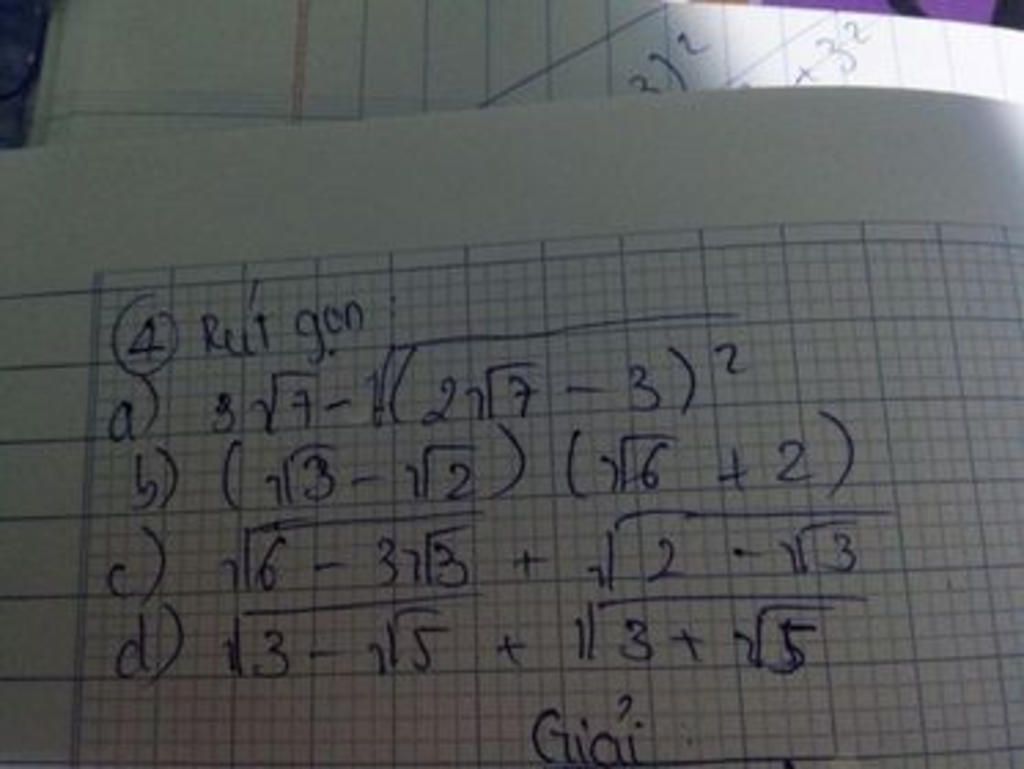 3)² + 3²
④ Rút gọn :
a) 3√7 - √((2√7 - 3)²)
b) (√3 - √2) (√6 + 2)
c) √(6 - 3√3) + √(2 - √3)
d) √(3 - √5) + √(3 + √5)
Giải